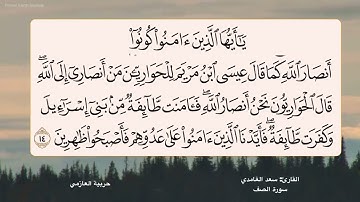 يَٰٓأَيُّهَا ٱلَّذِينَ ءَامَنُوا۟ كُونُوٓا۟
أَنصَارَ ٱللَّهِ كَمَا قَالَ عِيسَى ٱبْنُ مَرْيَمَ لِلْحَوَارِيِّـۧنَ مَنْ أَنصَارِىٓ إِلَى ٱللَّهِ ۖ
قَالَ ٱلْحَوَارِيُّونَ نَحْنُ أَنصَارُ ٱللَّهِ ۖ فَـَٔامَنَت طَّآئِفَةٌ مِّنۢ بَنِىٓ إِسْرَٰٓءِيلَ
وَكَفَرَت طَّآئِفَةٌ ۖ فَأَيَّدْنَا ٱلَّذِينَ ءَامَنُوا۟ عَلَىٰ عَدُوِّهِمْ فَأَصْبَحُوا۟ ظَٰهِرِينَ ١٤
القارئ: سعد الغامدي
سورة الصف
حربية العازمي